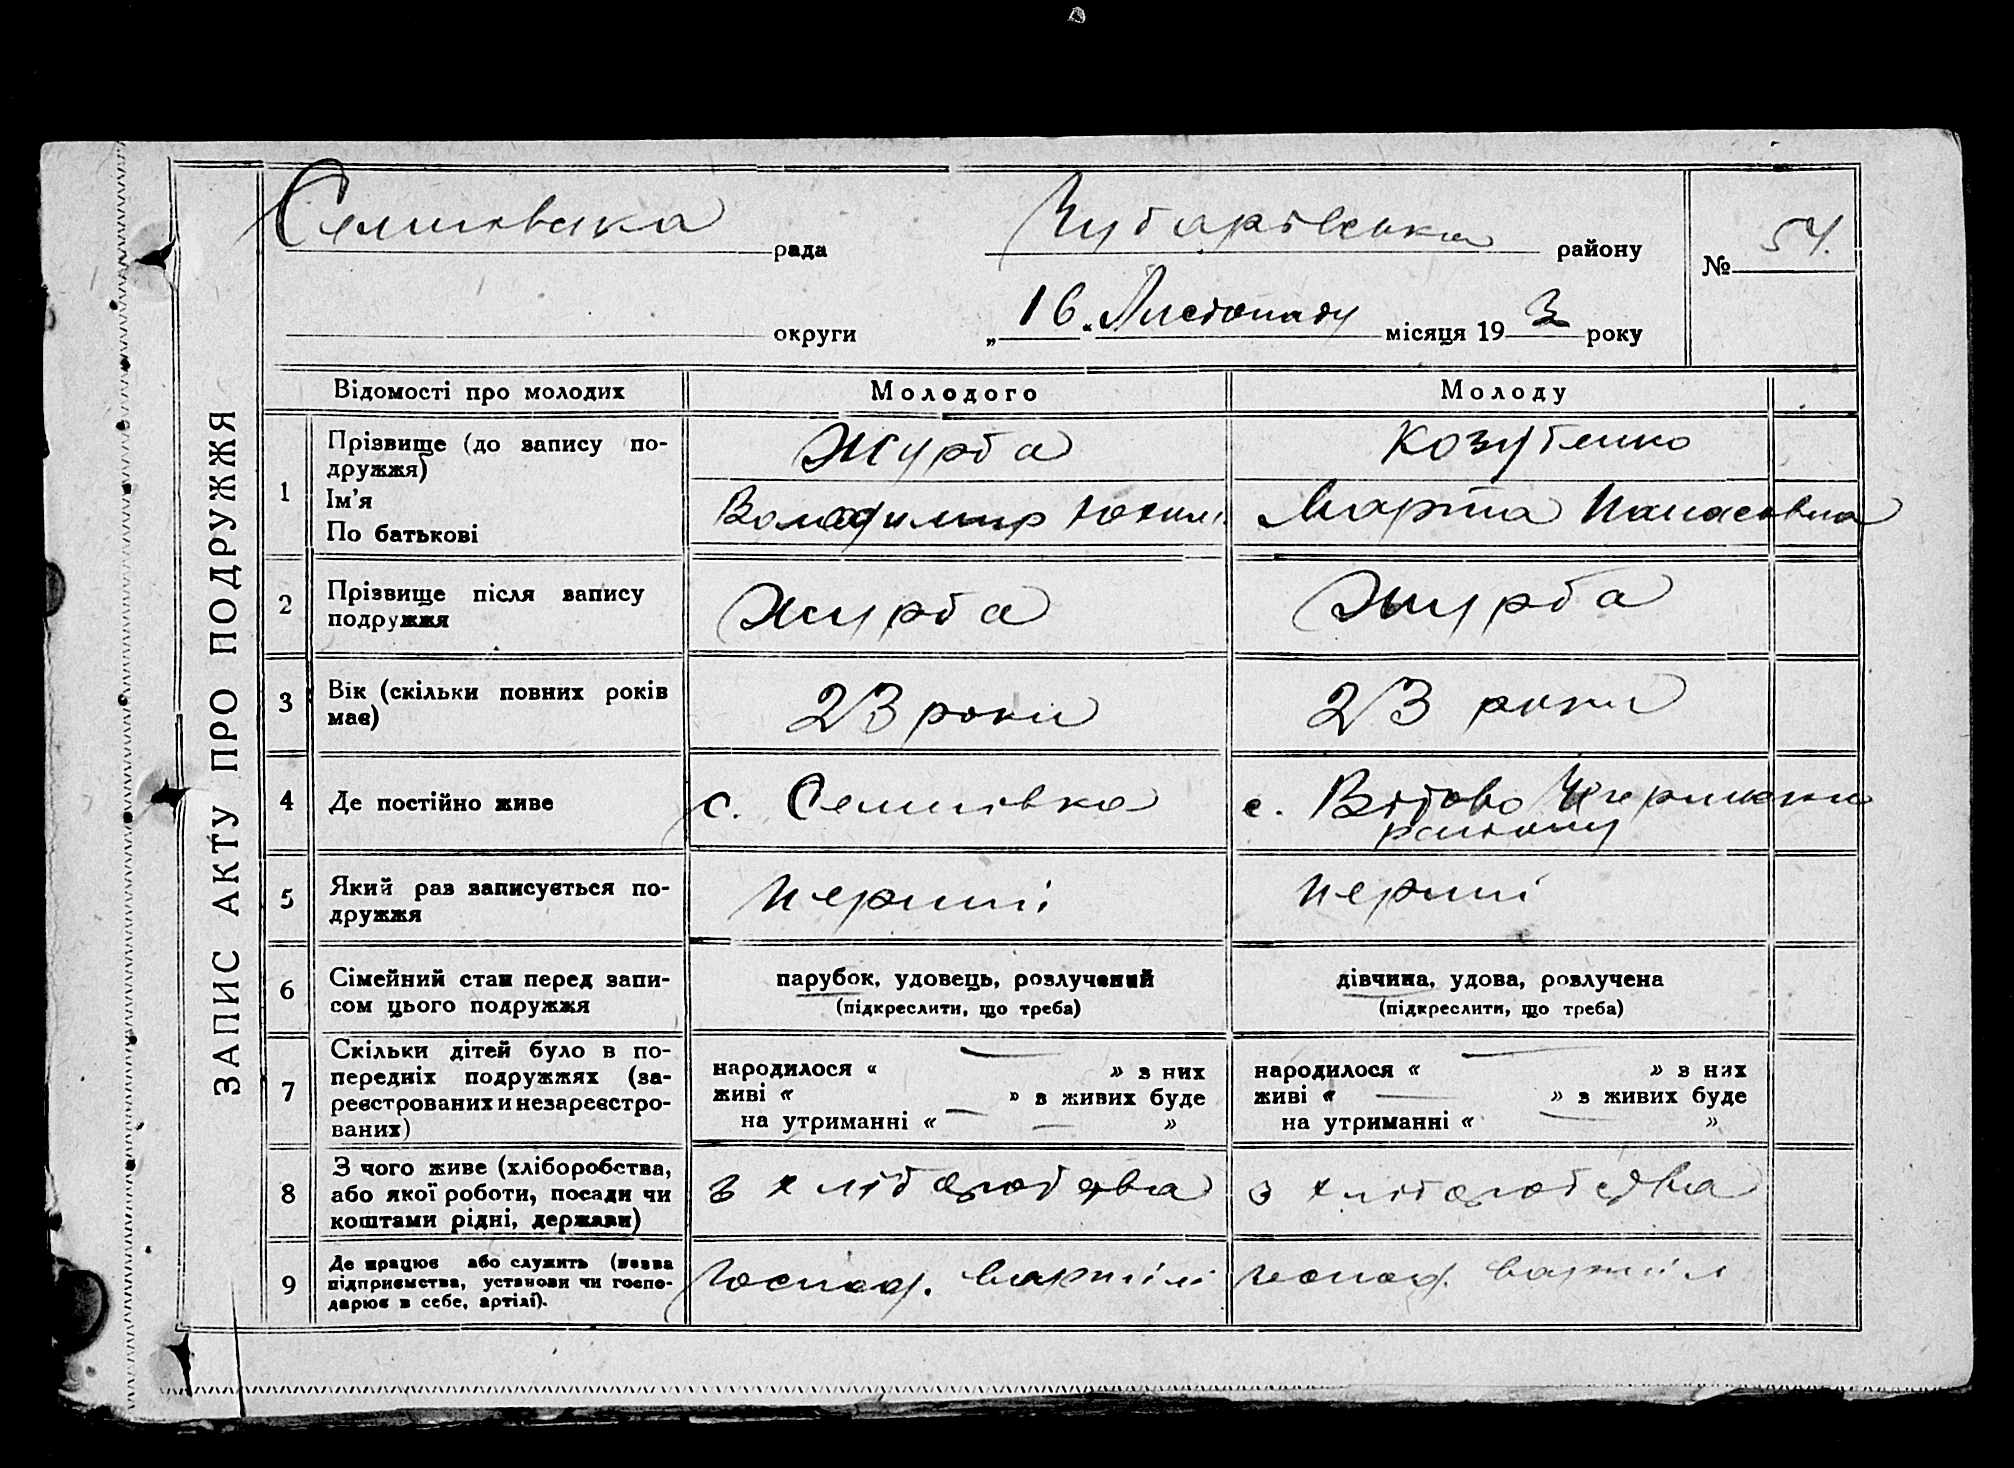 ЗАПИС АКТУ ПРО ПОДРУЖЖЯ
рада
Чубарівська району
№ 54.
округи
„16" Листопаду місяця 193 року
Відомості про молодих
Молодого
Молоду
1
Прізвище (до запису по-
дружжя)
Ім'я
По батькові
Журба
Володимир
Козубенко
Марта Панасовна
2
Прізвище після запису
подружжя
Журба
Журба
3
Вік (скільки повних років
має)
23 роки
23 роки
4
Де постійно живе
с. Семенівка
с. Вітово
району
5
Який раз записується по-
дружжя
перший
перший
6
Сімейний стан перед запи-
сом цього подружжя
парубок, удовець, розлучений
(підкреслити, що треба)
дівчина, удова, розлучена
(підкреслити, що треба)
7
Скільки дітей було в по-
передніх подружжях (за-
реєстрованих и незареєстро-
ваних)
народилося « — » з них
живі « — » в живих буде
на утриманні « — »
народилося « — » з них
живі « — » в живих буде
на утриманні « — »
8
З чого живе (хліборобства,
або якої роботи, посади чи
коштами рідні, держави)
з хліборобства
з хліборобства
9
Де працює або служить (назва
підприємства, установи чи госпо-
дарює в себе, артілі).
господ. в артілі
господ. в артіл